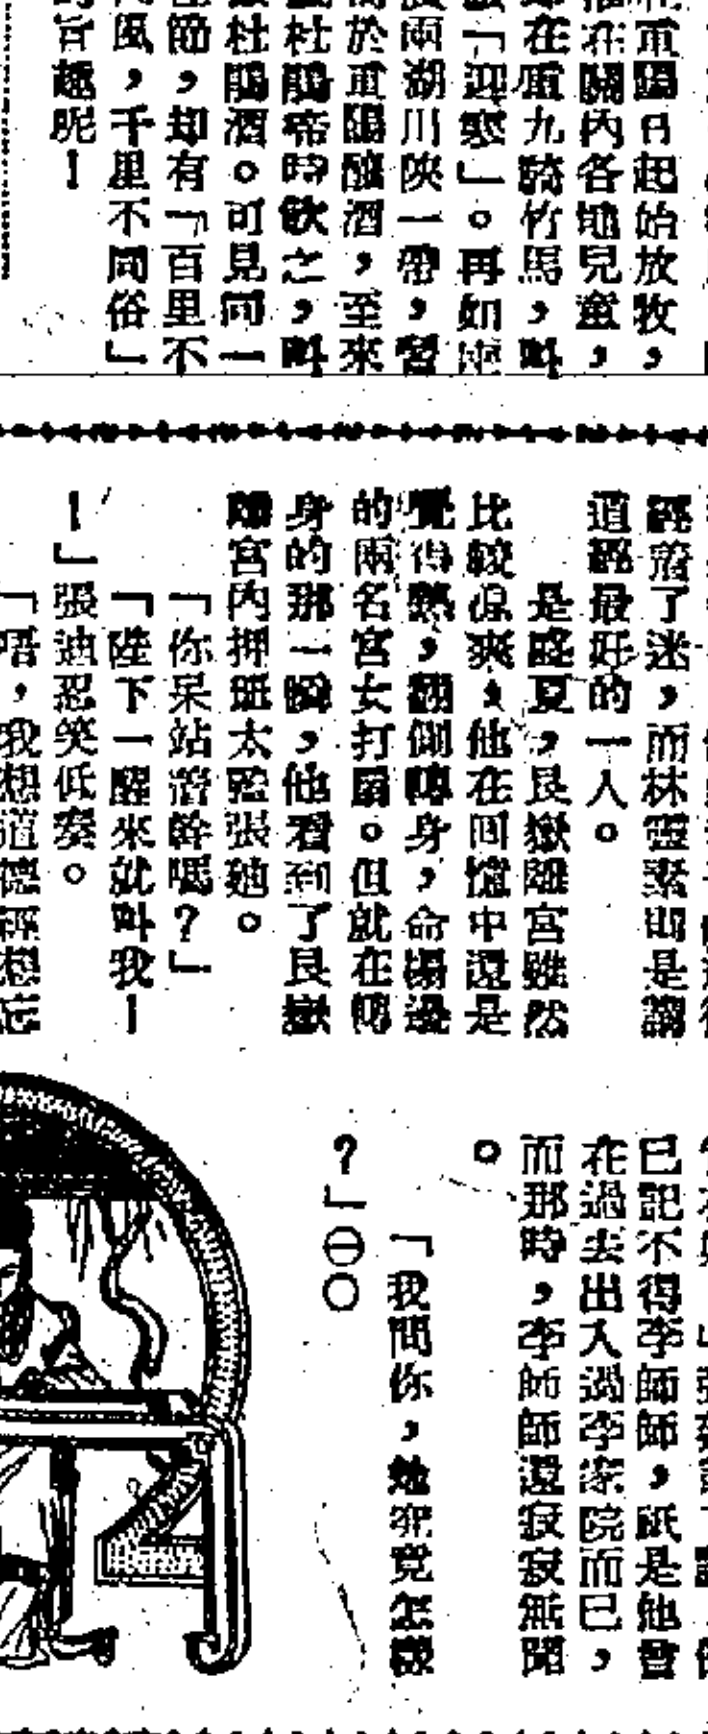 重陽日起始放牧，
在關內各地兒童，
在重九騎竹馬，叫
「迎寒」。再如
兩湖川陝一帶，習
於重陽釀酒，至來
杜鵑啼時飲之，叫
杜鵑酒。可見同一
節，却有「百里不
風，千里不同俗」
旨趣呢！
經着了迷，而林靈素却是講
道經最好的一人。
是盛夏，艮嶽離宮雖然
比較涼爽，他在回憶中還是
覺得熱，翻側轉身，命榻邊
的兩名宮女打扇。但就在轉
身的那一瞬，他看到了艮嶽
離宮內押班太監張迪。
「你呆站着幹嗎？」
「陛下一醒來就叫我—
—」張迪忍笑低奏。
「唔，我想道德經想忘
已記不得李師師，祇是他曾
在過去出入過李家院而已，
而那時，李師師還寂寂無聞
。
「我問你，她究竟怎樣
？」㊀〇